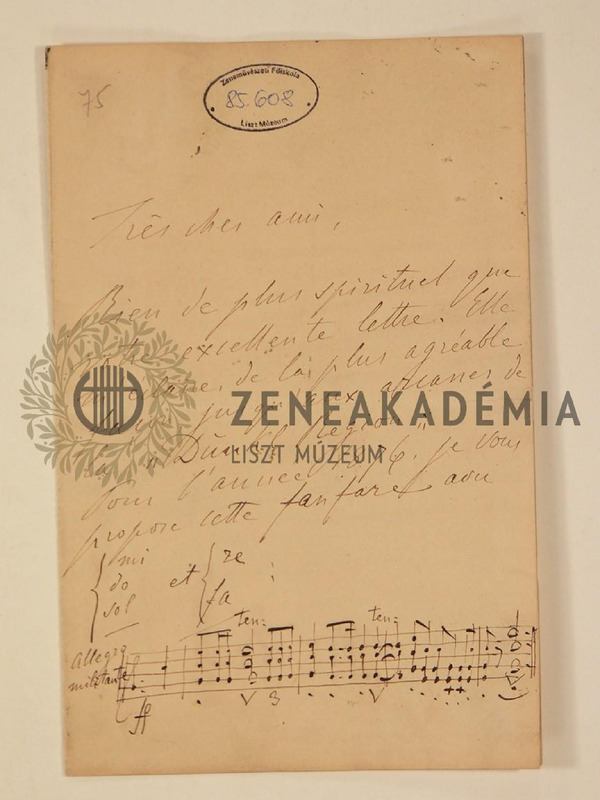 75
Zeneművészeti Főiskola
85.608
Liszt Múzeum
Très cher ami,
Rien de plus spirituel que
votre excellente lettre. Elle
m'éclaire de la plus agréable
jusqu'aux arcanes de
la
Pour l'année 1876. je vous
propose cette fanfare avec
mi
do
sol
et
re
fa
:
ten:
ten:
Allegro
militante
ff
3
ZENEAKADÉMIA
LISZT MÚZEUM